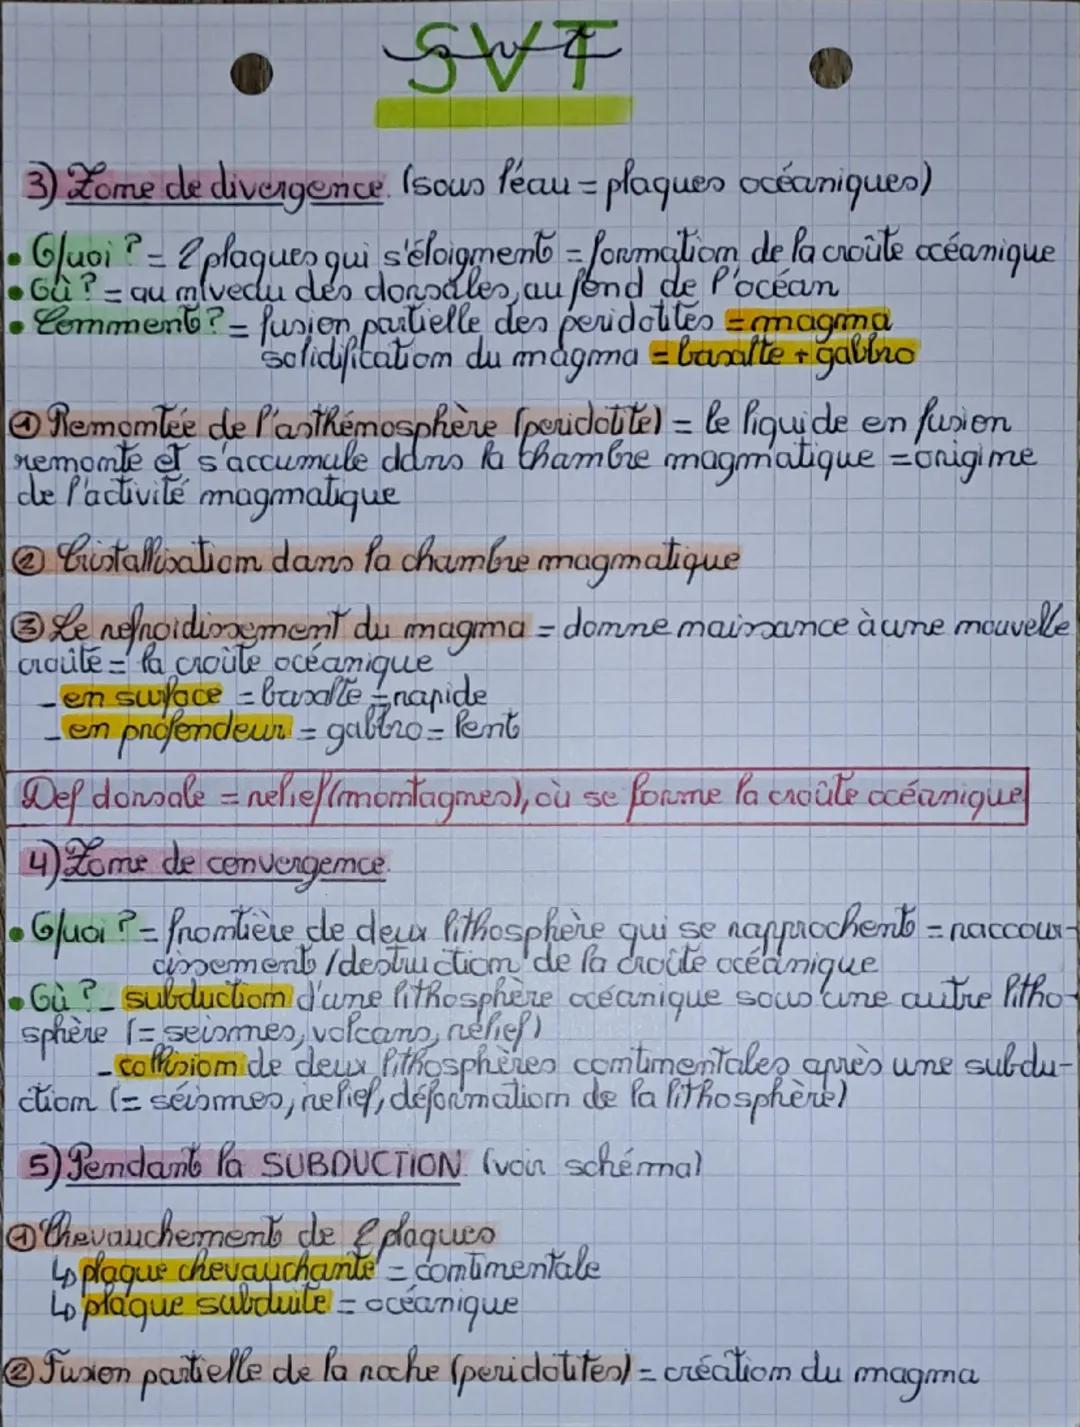 SVT
svt
3) Zone de divergence. (sous l'éau = plaques océaniques)
• Quoi ? = 2 plaques qui s'éloignent = formation de la croûte océanique
• Où ? = au niveau des dorsales, au fond de l'océan
• Comment ? = fusion partielle des peridotites = magma
solidification du magma = basalte + gabbro
① Remontée de l'asthénosphère (peridotite) = le liquide en fusion
remonte et s'accumule dans la chambre magmatique = origine
de l'activité magmatique
② Cristallisation dans la chambre magmatique
③ Le refroidissement du magma = donne naissance à une nouvelle
croûte = la croûte océanique
- en surface = basalte = rapide
- en profondeur = gabbro = lent
Def dorsale = relief (montagnes), où se forme la croûte océanique
4) Zone de convergence.
• Quoi ? = frontière de deux lithosphère qui se rapprochent = raccour-
cissement / destruction de la croûte océanique
• Où ? - subduction d'une lithosphère océanique sous une autre litho-
sphère (= seismes, volcans, relief)
- collision de deux lithosphères continentales après une subdu-
ction (= séismes, relief, déformation de la lithosphère)
5) Pendant la SUBDUCTION. (voir schéma)
① Chevauchement de 2 plaques
↳ plaque chevauchante = continentale
↳ plaque subduite = océanique
② Fusion partielle de la roche (peridotites) = création du magma